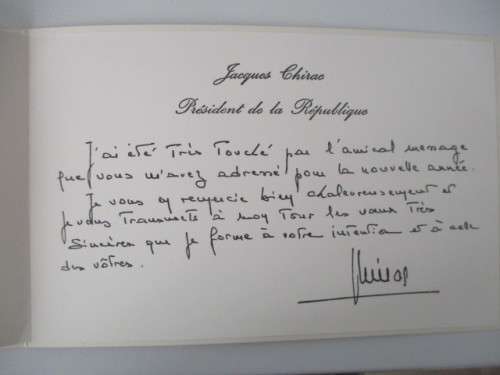 Jacques Chirac
Président de la République
J'ai été Très Touché par l'amical message
que vous m'avez adressé pour la nouvelle année.
Je vous en remercie bien chaleureusement et
je vous Transmets à mon Tour les vœux Très
Sincères que je forme à votre intention et à celle
des vôtres.